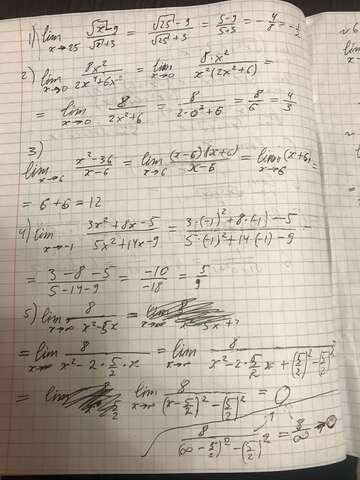 1) lim x→25 (√x - 9)/(√x + 3) = (√25 - 9)/(√25 + 3) = (5-9)/(5+3) = -4/8 = -1/2
2) lim x→0 8x²/(2x⁴+6x²) = lim x→0 (8·x²)/(x²(2x²+6)) =
= lim x→0 8/(2x²+6) = 8/(2·0²+6) = 8/6 = 4/3
3)
lim x→6 (x²-36)/(x-6) = lim x→6 (x-6)(x+6)/(x-6) = lim x→6 (x+6) =
= 6+6 = 12
4) lim x→-1 (3x²+8x-5)/(5x²+14x-9) = (3·(-1)²+8·(-1)-5)/(5·(-1)²+14·(-1)-9) =
= (3-8-5)/(5-14-9) = -10/-18 = 5/9
5) lim x→∞ 8/(x²-5x) = lim x→∞
= lim x→∞ 8/(x²-2·5/2·x) = lim x→∞ 8/(x²-2·5/2x+(5/2)²-(5/2)²)
= lim lim x→∞ 8/((x-5/2)²-(5/2)²) = 0
8/((∞-5/2)²-(5/2)²) = 8/∞ → 0